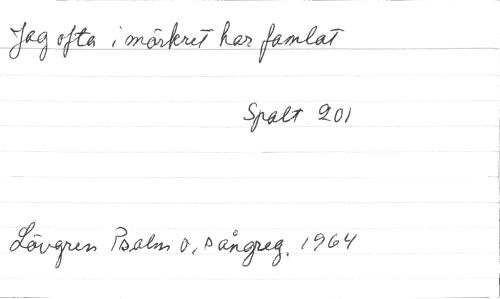 Jag ofta i mörkret har famlat
Spalt 201
Lövgren Psalm o. sångreg. 1964